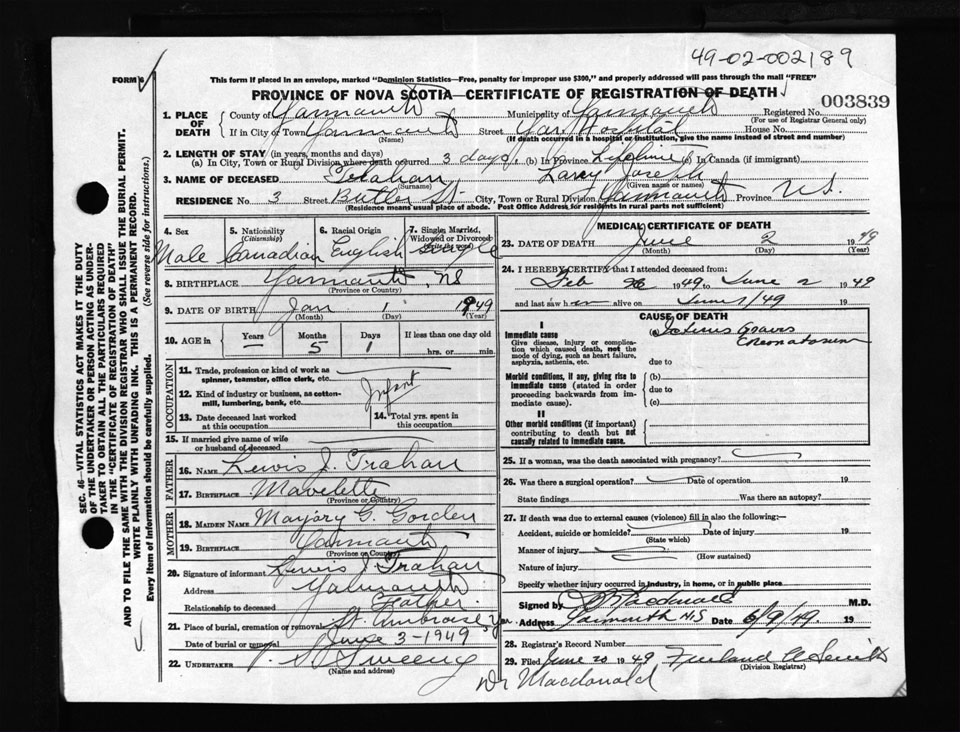 49-02-002189
FORM 6
This form if placed in an envelope, marked "Dominion Statistics—Free, penalty for improper use $300," and properly addressed will pass through the mail "FREE"
PROVINCE OF NOVA SCOTIA—CERTIFICATE OF REGISTRATION OF DEATH
003839
1. PLACE OF DEATH County of Yarmouth Municipality of Yarmouth Registered No.
(For use of Registrar General only)
If in City or Town Yarmouth Street Yar. Hospital House No.
(Name) (If death occurred in a hospital or institution, give the name instead of street and number)
2. LENGTH OF STAY (in years, months and days)
(a) In City, Town or Rural Division where death occurred 3 days (b) In Province Lifetime (c) In Canada (if immigrant)
3. NAME OF DECEASED Trahan Larry Joseph
(Surname) (Given name or names)
RESIDENCE No. 3 Street Butler St. City, Town or Rural Division Yarmouth Province N.S.
(Residence means usual place of abode. Post Office Address for residents in rural parts not sufficient)
4. Sex 5. Nationality (Citizenship) 6. Racial Origin 7. Single, Married, Widowed or Divorced (write the word)
Male Canadian English Single
8. BIRTHPLACE Yarmouth, NS
(Province or Country)
9. DATE OF BIRTH Jan 1 1949
(Month) (Day) (Year)
10. AGE in Years Months Days If less than one day old
— 5 1 hrs. or min.
OCCUPATION
11. Trade, profession or kind of work as spinner, teamster, office clerk, etc.
12. Kind of industry or business, as cotton-mill, lumbering, bank, etc. Infant
13. Date deceased last worked at this occupation 14. Total yrs. spent in this occupation
15. If married give name of wife or husband of deceased
FATHER
16. NAME Lewis J. Trahan
17. BIRTHPLACE Mavelette
(Province or Country)
MOTHER
18. MAIDEN NAME Marjory G. Gorden
19. BIRTHPLACE Yarmouth
(Province or Country)
20. Signature of informant Lewis J. Trahan
Address Yarmouth
Relationship to deceased Father
21. Place of burial, cremation or removal St. Ambroise, Yar.
Date of burial or removal June 3-1949
22. UNDERTAKER V. S. Sweeny
(Name and address)
MEDICAL CERTIFICATE OF DEATH
23. DATE OF DEATH June 2 1949
(Month) (Day) (Year)
24. I HEREBY CERTIFY that I attended deceased from:
Feb 1949 to June 2 1949
and last saw him alive on June 1/49 19
CAUSE OF DEATH
I
Immediate cause (a) Icterus Gravis
Give disease, injury or complication which caused death, not the mode of dying, such as heart failure, asphyxia, asthenia, etc. Neonatorum
due to
Morbid conditions, if any, giving rise to immediate cause (stated in order proceeding backwards from immediate cause). (b)
due to
(c)
II
Other morbid conditions (if important) contributing to death but not causally related to immediate cause.
25. If a woman, was the death associated with pregnancy?
26. Was there a surgical operation? Date of operation 19
State findings Was there an autopsy?
27. If death was due to external causes (violence) fill in also the following:—
Accident, suicide or homicide? Date of injury 19
(State which)
Manner of injury
(How sustained)
Nature of injury
Specify whether injury occurred in industry, in home, or in public place
Signed by Macdonald M.D.
Address Yarmouth N.S. Date 6/9/49. 19
28. Registrar's Record Number
29. Filed June 20 1949
(Division Registrar)
Dr Macdonald
SEC. 46—VITAL STATISTICS ACT MAKES IT THE DUTY
OF THE UNDERTAKER OR PERSON ACTING AS UNDER-
TAKER TO OBTAIN ALL THE PARTICULARS REQUIRED
IN THE "CERTIFICATE OF REGISTRATION OF DEATH"
AND TO FILE THE SAME WITH THE DIVISION REGISTRAR WHO SHALL ISSUE THE BURIAL PERMIT.
WRITE PLAINLY WITH UNFADING INK. THIS IS A PERMANENT RECORD.
Every item of Information should be carefully supplied. (See reverse side for instructions.)